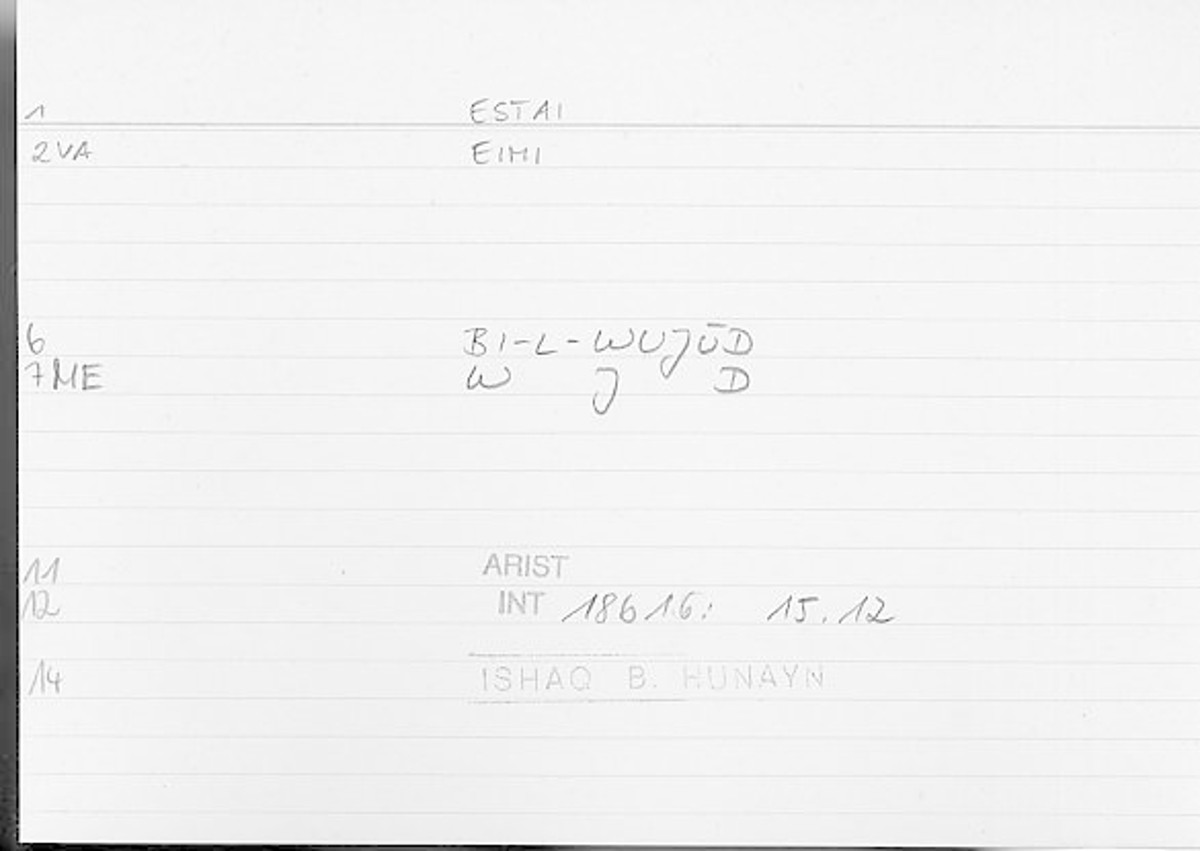 1 ESTAI
2VA EIMI
6 BI-L-WUJŪD
7ME W J D
11 ARIST
12 INT 18616: 15.12
14 ISHAQ B. HUNAYN